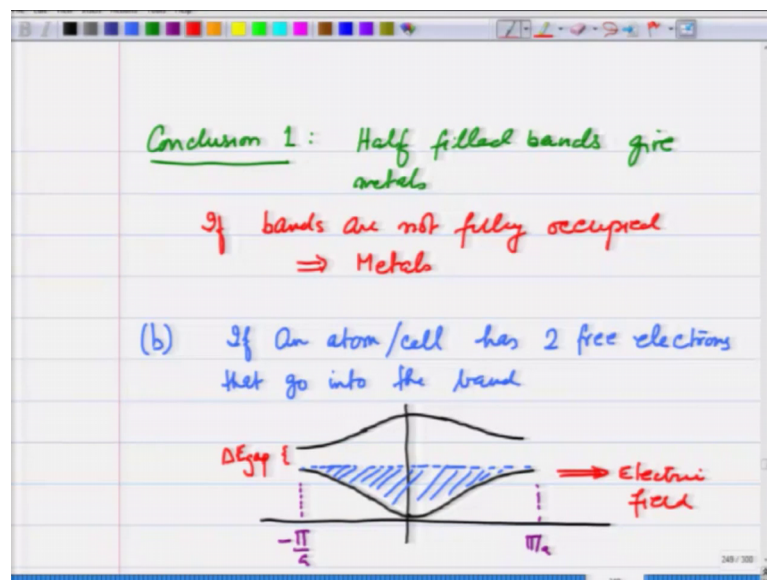 Conclusion 1: Half filled bands give
metals
If bands are not fully occupied
⇒ Metals
(b) If an atom/cell has 2 free electrons
that go into the band
ΔEgap {
⇒ Electric
field
-π/a
π/a
249 / 300